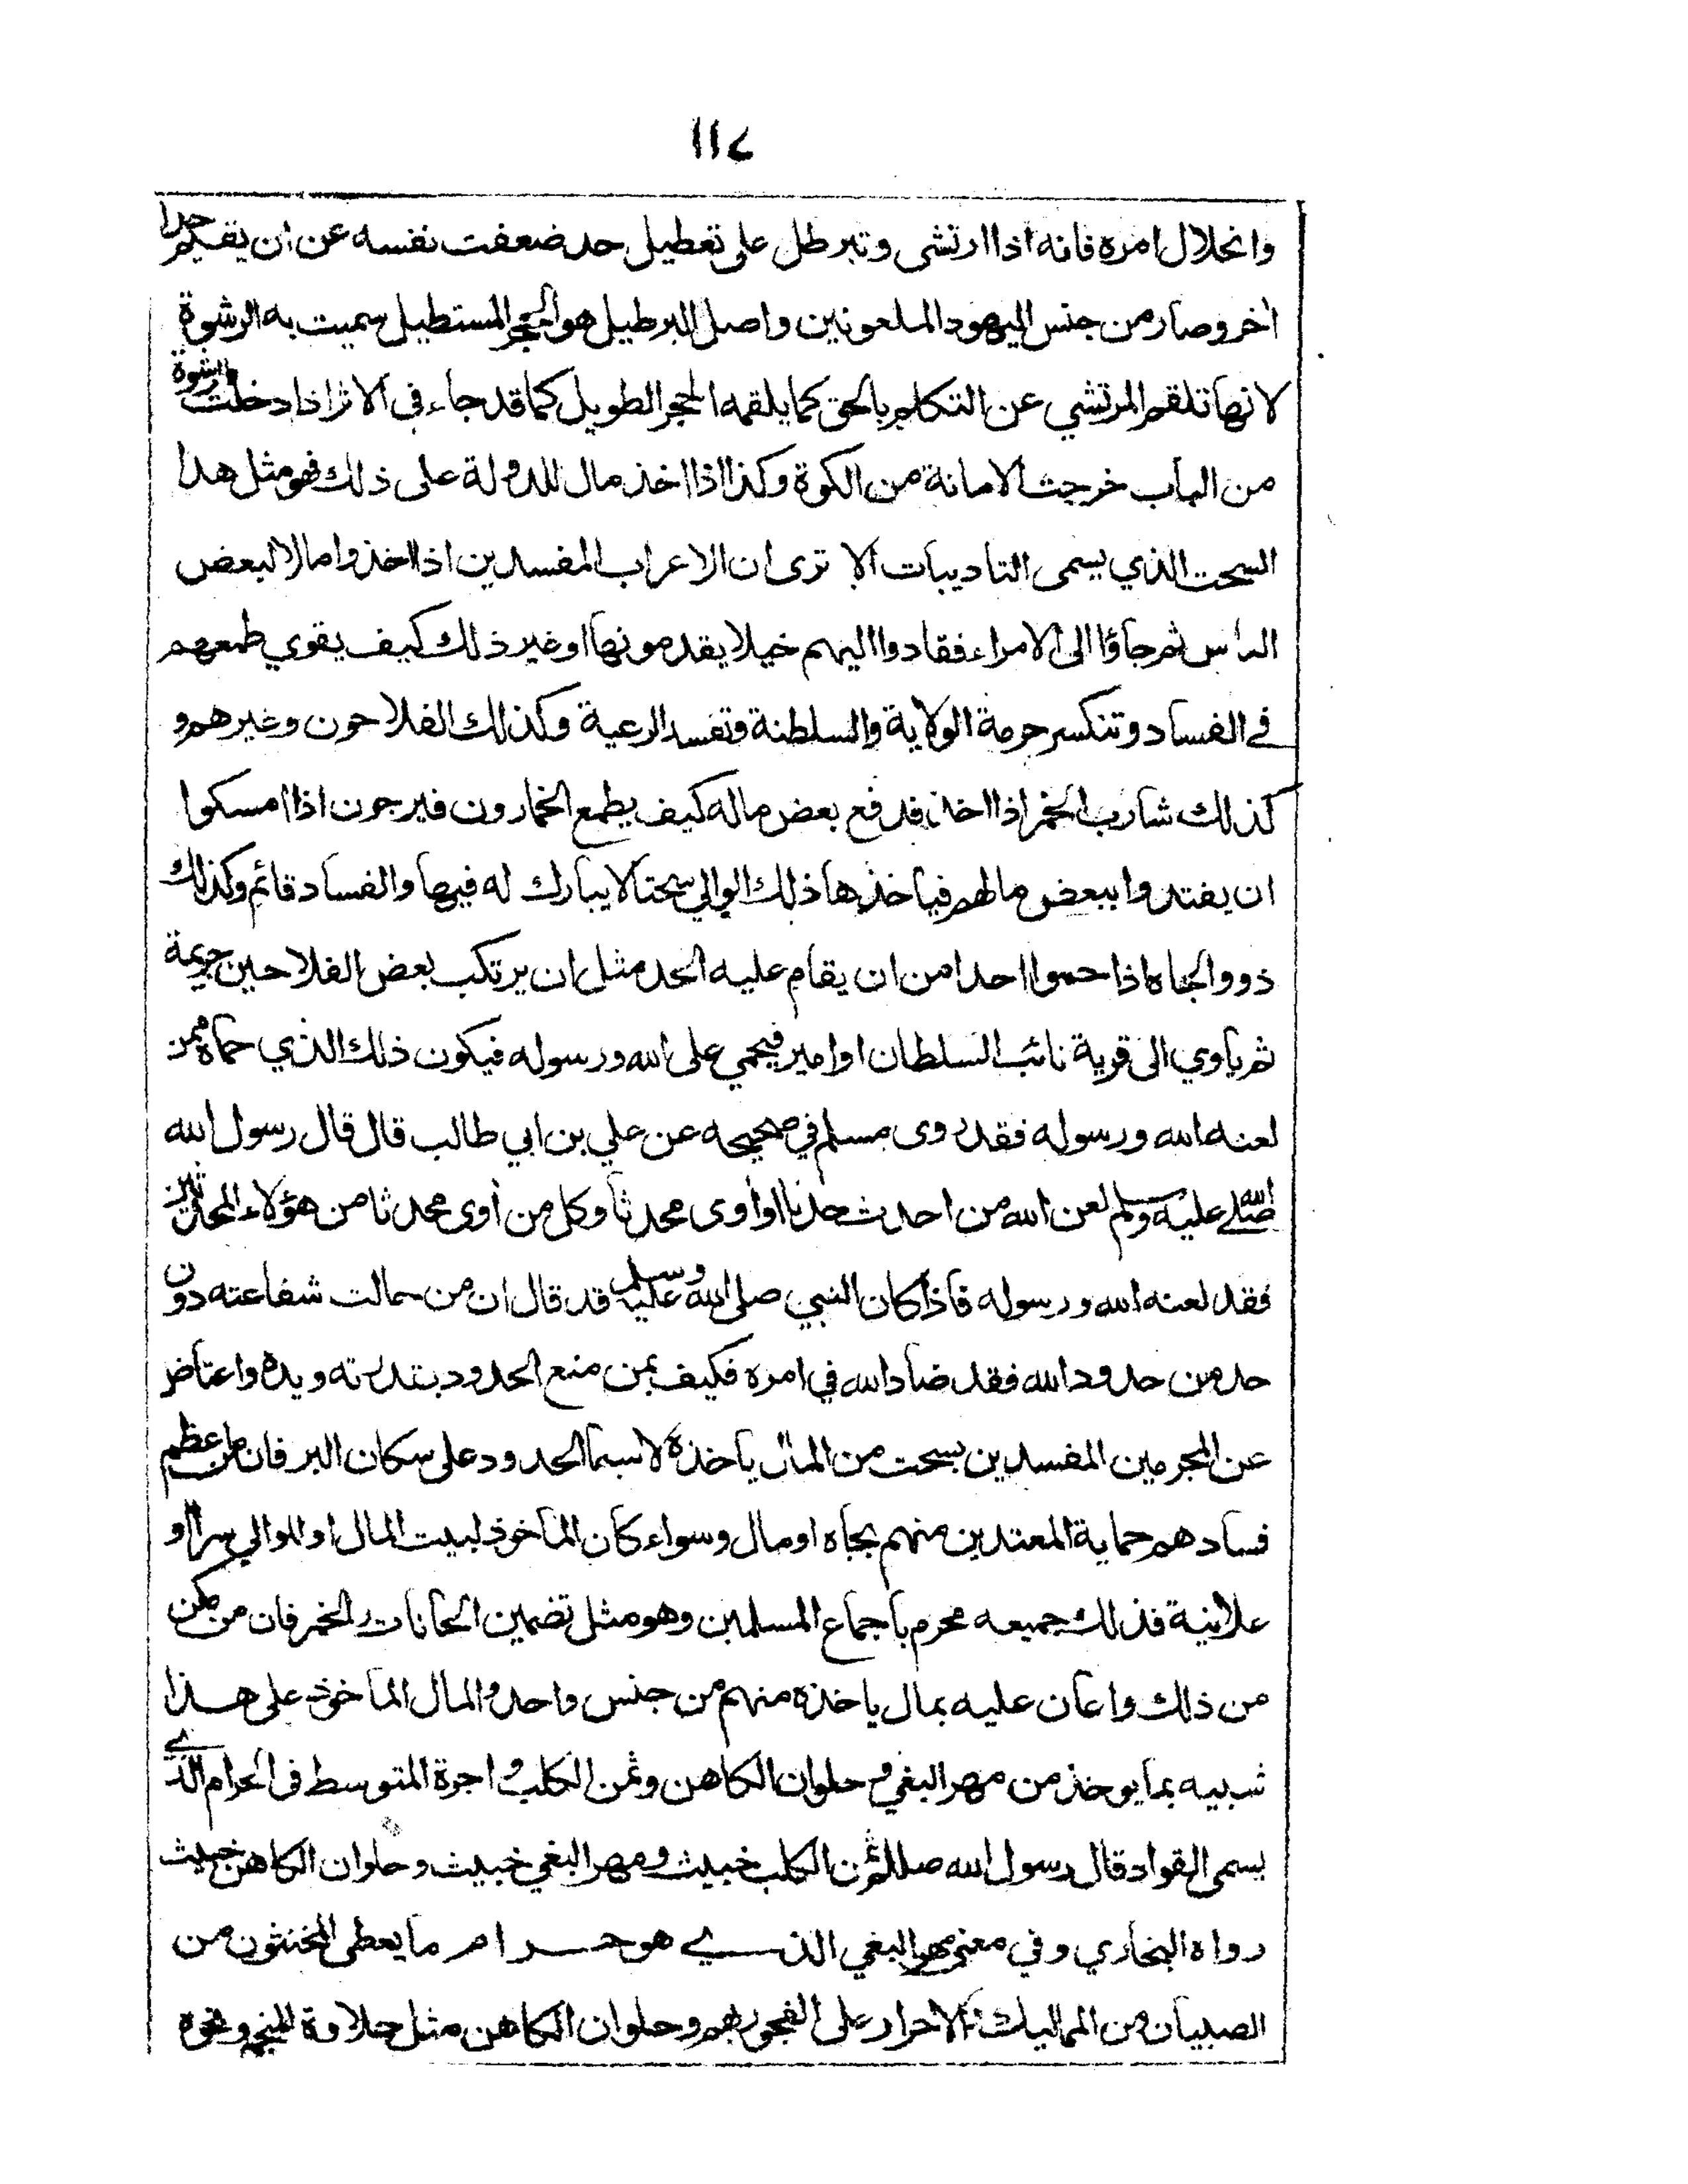 ١١٧
وانحلال امره فانه اذا ارتشى وتبرطل على تعطيل حد ضعفت نفسه عن ان يقيم حدا
اخر وصار من جنس اليهود الملعونين واصل البرطيل هو الحجر المستطيل سميت به الرشوة
لانها تلقم المرتشي عن التكلم بالحق كما يلقمه الحجر الطويل كما قد جاء في الاثر اذا دخلت الرشوة
من الباب خرجت الامانة من الكوة وكذا اذا اخذ مال للدولة على ذلك فهو مثل هذا
السحت الذي يسمى التاديبات الا ترى ان الاعراب المفسدين اذا اخذوا مالا لبعض
الناس ثم جاؤا الى الامراء فقادوا اليهم خيلا يقدمونها او غير ذلك كيف يقوي طمعهم
في الفساد وتنكسر حرمة الولاية والسلطنة وتفسد الرعية وكذلك الفلاحون وغيرهم و
كذلك شارب الخمر اذا اخذ فدفع بعض ماله كيف يطمع الخمارون فيرجون اذا امسكوا
ان يفتدوا ببعض مالهم فياخذها ذلك الوالي سحتا لا يبارك له فيها والفساد قائم وكذلك
ذوو الجاه اذا حموا احدا من ان يقام عليه الحد مثل ان يرتكب بعض الفلاحين جريمة
ثم ياوي الى قرية نائب السلطان او امير فيحمي على الله ورسوله فيكون ذلك الذي حماه ممن
لعنه الله ورسوله فقد روى مسلم في صحيحه عن علي بن ابي طالب قال قال رسول الله
صلى الله عليه وسلم لعن الله من احدث حدثا او اوى محدثا وكل من أوى محدثا من هؤلاء المحدثين
فقد لعنه الله ورسوله فاذا كان النبي صلى الله عليه وسلم قد قال ان من حالت شفاعته دون
حد من حدود الله فقد ضاد الله في امره فكيف بمن منع الحدود بقدرته ويده واعتاض
عن المجرمين المفسدين بسحت من المال ياخذه لا سيما الحدود على سكان البر فان من اعظم
فسادهم حماية المعتدين منهم بجاه او مال وسواء كان الماخوذ لبيت المال او للوالي سرا او
علانية فذلك جميعه محرم باجماع المسلمين وهو مثل تضمين الحانات والخمر فان من مكن
من ذلك واعان عليه بمال ياخذه منهم من جنس واحد والمال الماخوذ على هذا
شبيه بما يوخذ من مهر البغي وحلوان الكاهن وثمن الكلب واجرة المتوسط في الحرام الذي
يسمى القواد قال رسول الله صللم ثمن الكلب خبيث ومهر البغي خبيث وحلوان الكاهن خبيث
رواه البخاري وفي معنى مهر البغي الذي هو حرام ما يعطى المخنثون من
الصبيان من المماليك الاحرار على الفجور بهم وحلوان الكاهن مثل حلاوة المنجم ونحوه